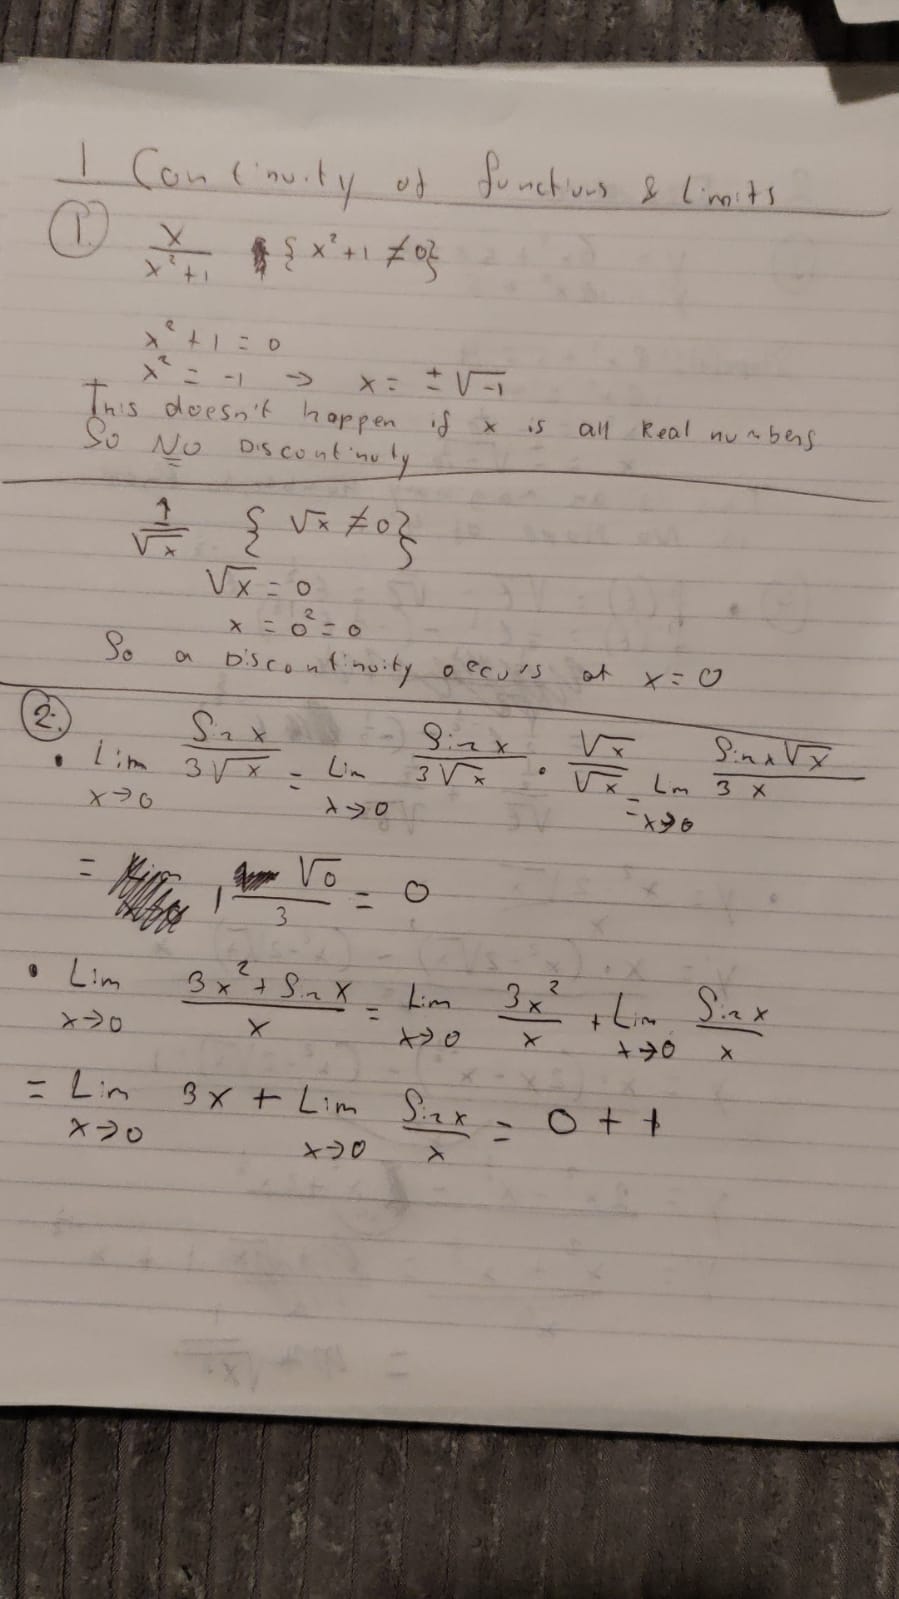 1 Continuity of functions & limits
1. x/(x²+1) { x²+1 ≠ 0}
x²+1 = 0
x² = -1 → x = ±√-1
This doesn't happen if x is all Real numbers
So NO Discontinuty
1/√x { √x ≠ 0}
√x = 0
x = 0² = 0
So a Discontinuity occurs at x = 0
2.
• Lim x→0 Sin x/(3√x) = Lim x→0 Sin x/(3√x) · √x/√x = Lim x→0 Sin x√x/(3x)
= 1 √0/3 = 0
• Lim x→0 (3x² + Sin x)/x = Lim x→0 3x²/x + Lim x→0 Sin x/x
= Lim x→0 3x + Lim x→0 Sin x/x = 0 + 1